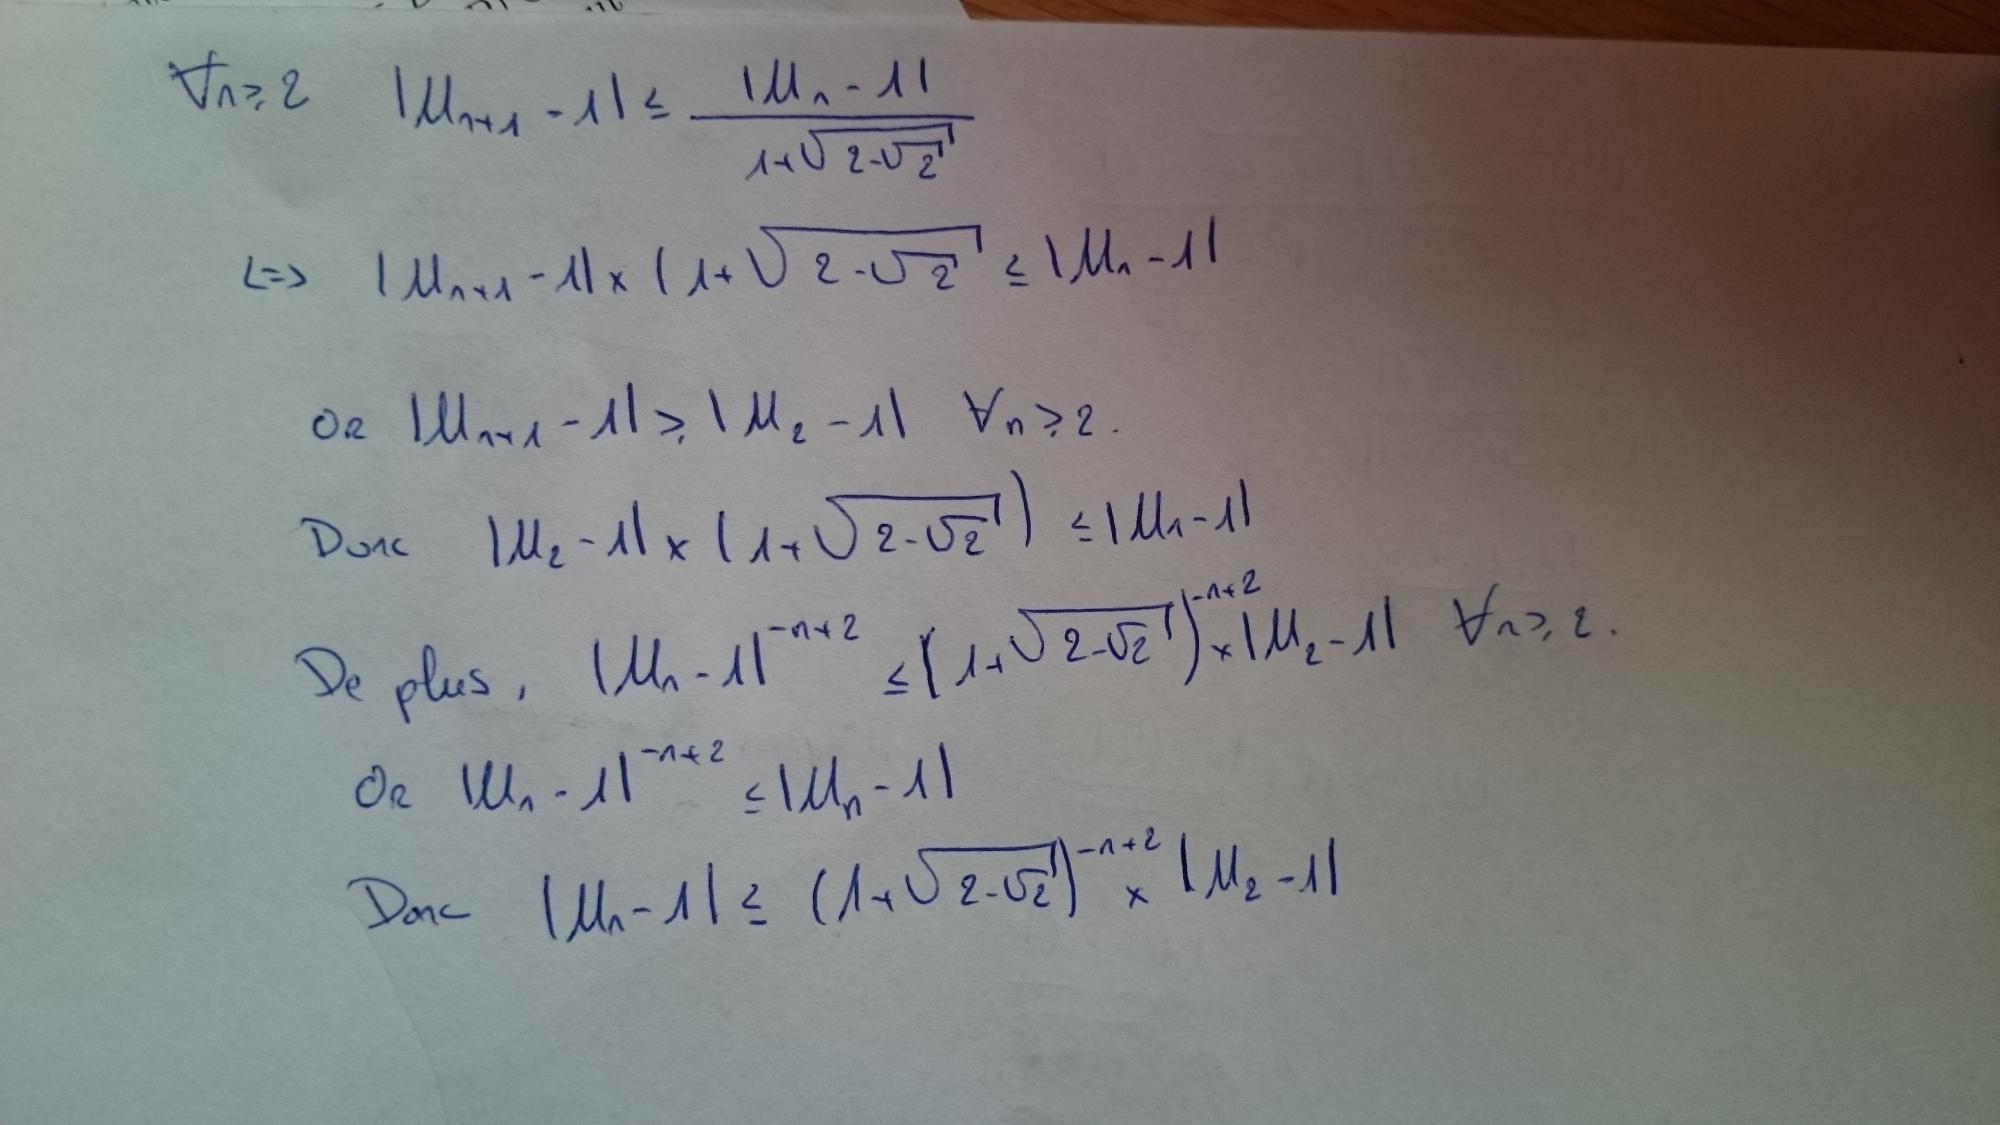 ∀n≥2 |Un+1 - 1| ≤ |Un - 1| / (1+√(2-√2))
<=> |Un+1 - 1| x (1+√(2-√2) ≤ |Un - 1|
OR |Un+1 - 1| ≥ |U2 - 1| ∀n≥2.
Donc |U2 - 1| x (1+√(2-√2)) ≤ |Un - 1|
De plus, |Un - 1|^(-n+2) ≤ (1+√(2-√2))^(-n+2) x |U2 - 1| ∀n≥2.
OR |Un - 1|^(-n+2) ≤ |Un - 1|
Donc |Un - 1| ≤ (1+√(2-√2))^(-n+2) x |U2 - 1|